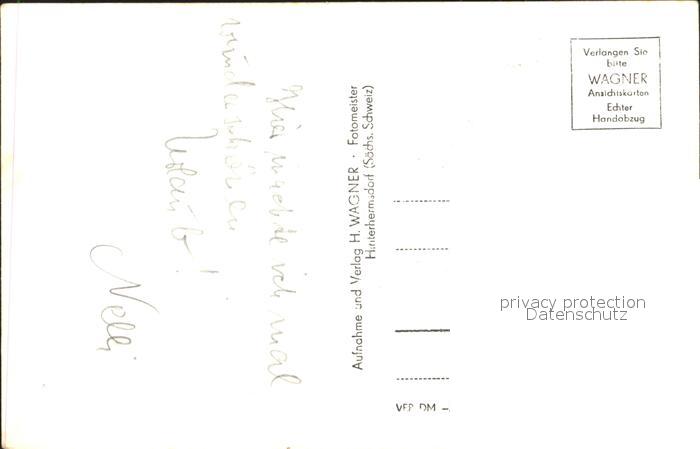 Hier machte ich mal
wunderschönen
Urlaub!
Nelli
Aufnahme und Verlag H. WAGNER · Fotomeister
Hinterhermsdorf (Sächs. Schweiz)
Verlangen Sie
bitte
WAGNER
Ansichtskarten
Echter
Handabzug
privacy protection
Datenschutz
VEP DM –.